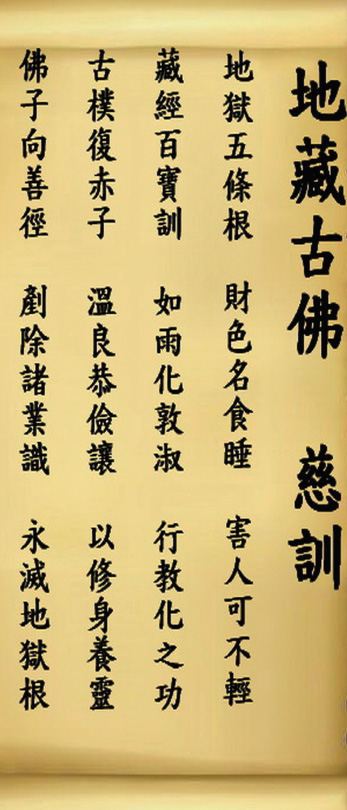 地藏古佛 慈訓
地獄五條根 財色名食睡 害人可不輕
藏經百寶訓 如雨化敦淑 行教化之功
古樸復赤子 溫良恭儉讓 以修身養靈
佛子向善徑 剷除諸業識 永滅地獄根